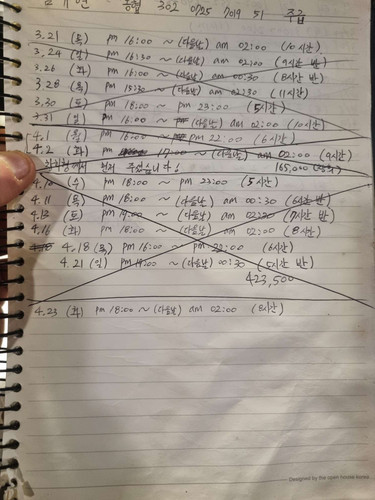 농협 302 0725 7019 51 주급
3.21 (목) pm 16:00 ~ (다음날) am 02:00 (10시간)
3.24 (일) pm 16:30 ~ (다음날) am 02:00 (9시간 반)
3.26 (화) pm 16:00 ~ (다음날) am 00:30 (8시간 반)
3.28 (목) pm 15:30 ~ (다음날) am 02:30 (11시간)
3.30 (토) pm 18:00 ~ pm 23:00 (5시간)
3.31 (일) pm 16:00 ~ (다음날) am 02:00 (10시간)
4.1 (월) pm 16:00 ~ pm 22:00 (6시간)
4.2 (화) pm 17:00 ~ (다음날) am 02:00 (9시간)
먼저 주셨습니다! 165,000
4.10 (수) pm 18:00 ~ pm 23:00 (5시간)
4.11 (목) pm 18:00 ~ (다음날) am 00:30 (6시간 반)
4.13 (토) pm 19:00 ~ (다음날) am 02:30 (7시간 반)
4.16 (화) pm 18:00 ~ (다음날) am 02:00 (8시간)
4.18 (목) pm 16:00 ~ pm 22:00 (6시간)
4.21 (일) pm 19:00 ~ (다음날) 00:30 (5시간 반)
423,500
4.23 (화) pm 18:00 ~ (다음날) am 02:00 (8시간)
Designed by the open house Korea